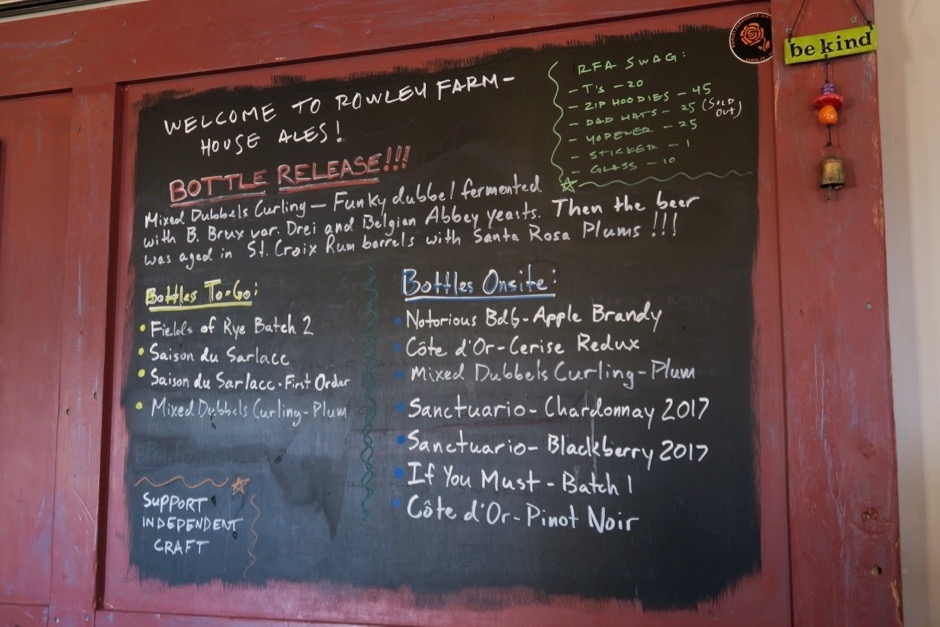 be kind
WELCOME TO ROWLEY FARM-
HOUSE ALES!
RFA SWAG:
- T's - 20
- ZIP HOODIES - 45
- DAD HATS - 25 (SOLD OUT)
- YOPENER - 25
- STICKER - 1
- GLASS - 10
BOTTLE RELEASE!!!
Mixed Dubbels Curling — Funky dubbel fermented
with B. Brux var. Drei and Belgian Abbey yeasts. Then the beer
was aged in St. Croix Rum barrels with Santa Rosa Plums !!!
Bottles To-Go:
• Fields of Rye Batch 2
• Saison du Sarlacc
• Saison du Sarlacc - First Order
• Mixed Dubbels Curling - Plum
Bottles Onsite:
• Notorious Bd6 - Apple Brandy
• Côte d'Or - Cerise Redux
• Mixed Dubbels Curling - Plum
• Sanctuario - Chardonnay 2017
• Sanctuario - Blackberry 2017
• If You Must - Batch 1
• Côte d'Or - Pinot Noir
SUPPORT
INDEPENDENT
CRAFT